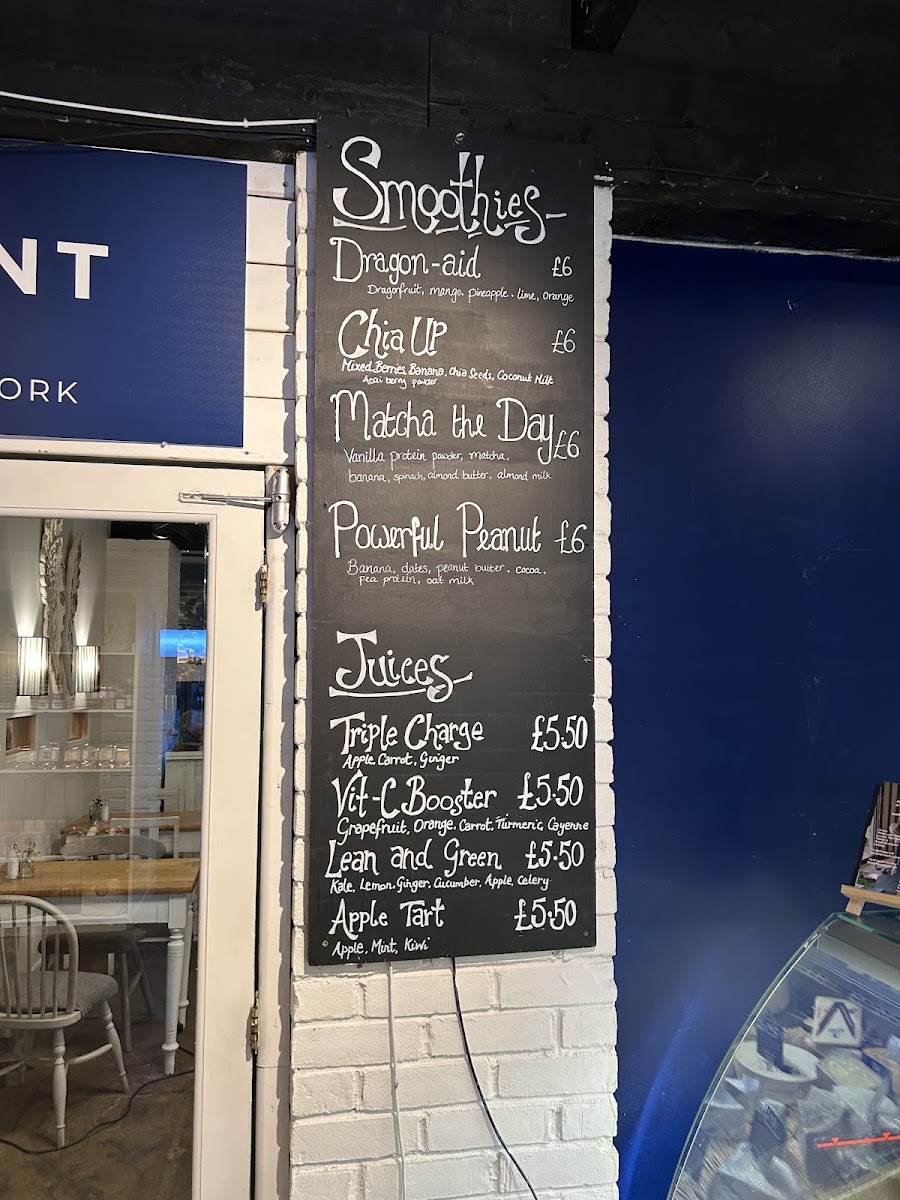 NT
ORK
Smoothies
Dragon-aid £6
Dragonfruit, mango, pineapple, lime, orange
Chia UP £6
Mixed Berries, Banana, Chia Seeds, Coconut Milk
Acai berry powder
Matcha the Day £6
Vanilla protein powder, matcha,
banana, spinach, almond butter, almond milk
Powerful Peanut £6
Banana, dates, peanut butter, cocoa,
pea protein, oat milk
Juices
Triple Charge £5.50
Apple, Carrot, Ginger
Vit-C Booster £5.50
Grapefruit, Orange, Carrot, Turmeric, Cayenne
Lean and Green £5.50
Kale, Lemon, Ginger, Cucumber, Apple, Celery
Apple Tart £5.50
Apple, Mint, Kiwi